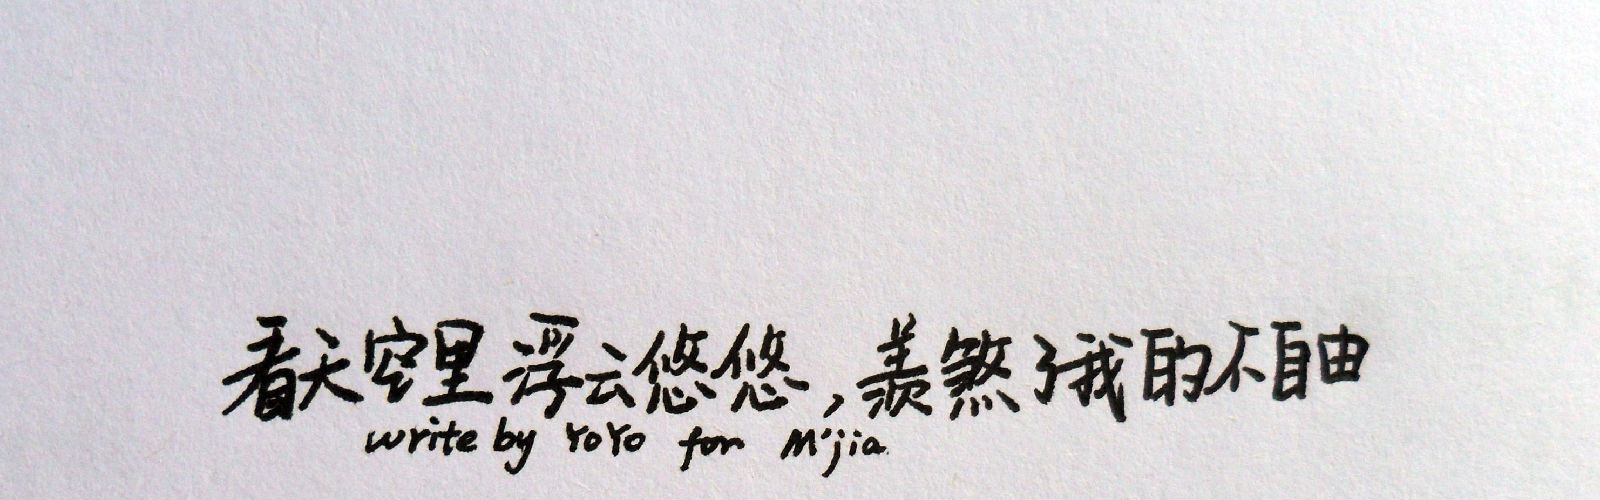 看天空里浮云悠悠,羡煞了我的不自由
write by YoYo for M'jia